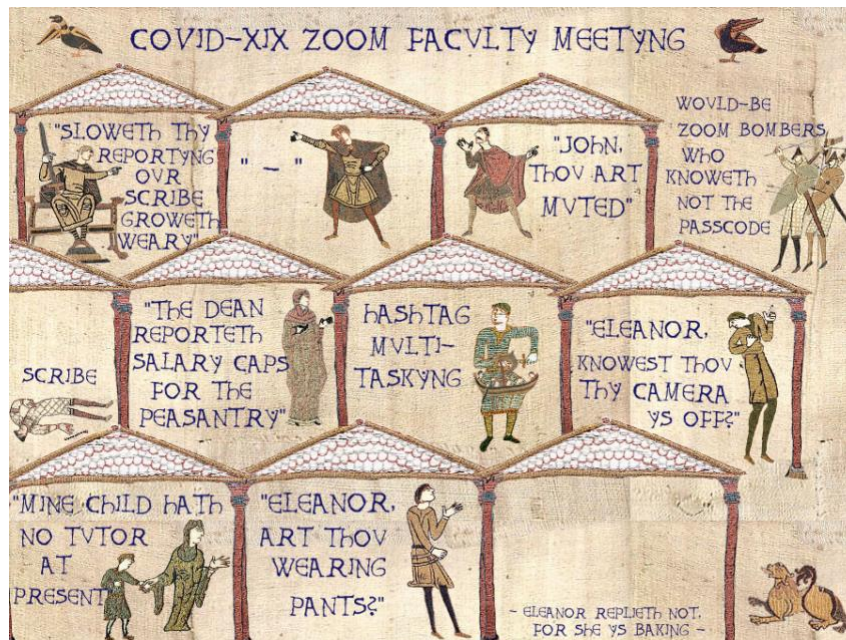 COVID-XIX ZOOM FACVLTY MEETYNG
"SLOWETH THY
REPORTYNG
OVR
SCRIBE
GROWETH
WEARY"
" — "
"JOHN,
THOV ART
MVTED"
WOVLD-BE
ZOOM BOMBERS
WHO
KNOWETH
NOT THE
PASSCODE
SCRIBE
"THE DEAN
REPORTETH
SALARY CAPS
FOR THE
PEASANTRY"
HASHTAG
MVLTI-
TASKYNG
"ELEANOR,
KNOWEST THOV
THY CAMERA
YS OFF?"
"MINE CHILD HATH
NO TVTOR
AT
PRESENT"
"ELEANOR,
ART THOV
WEARING
PANTS?"
- ELEANOR REPLIETH NOT,
FOR SHE YS BAKING -